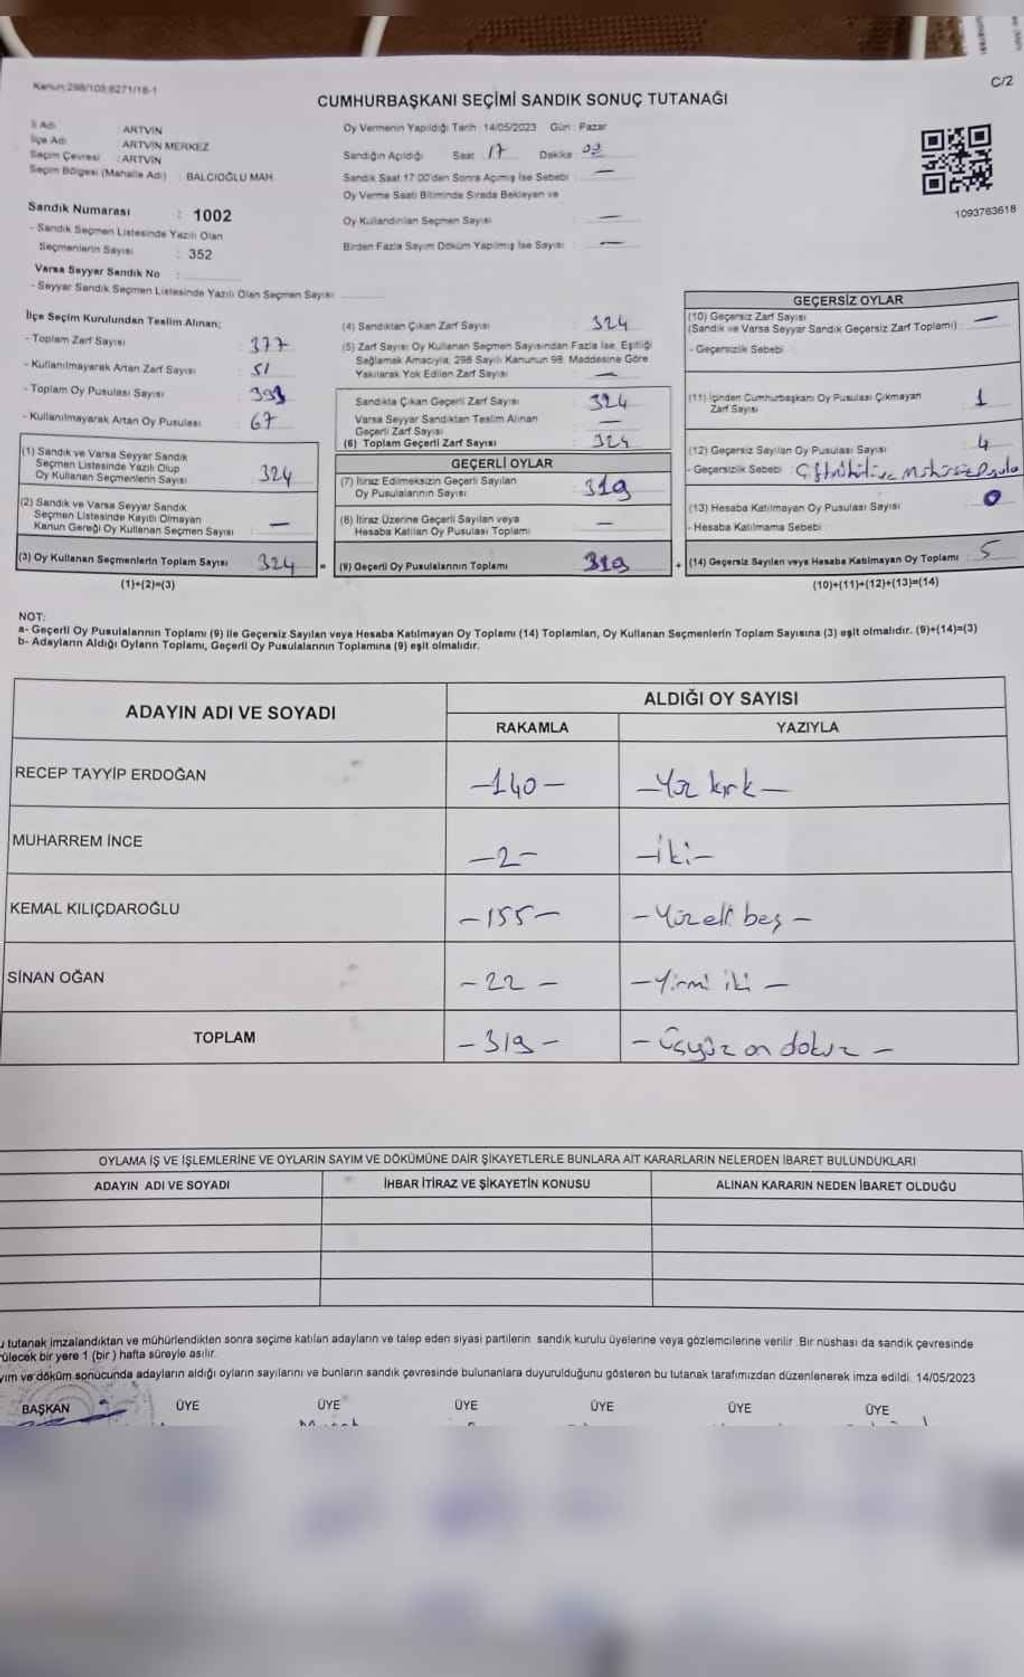 Kanun:298/103;6271/18-1
C/2
CUMHURBAŞKANI SEÇİMİ SANDIK SONUÇ TUTANAĞI
İl Adı : ARTVİN
İlçe Adı : ARTVİN MERKEZ
Seçim Çevresi : ARTVİN
Seçim Bölgesi (Mahalle Adı) : BALCIOĞLU MAH.
Sandık Numarası : 1002
- Sandık Seçmen Listesinde Yazılı Olan
Seçmenlerin Sayısı : 352
Varsa Seyyar Sandık No :
- Seyyar Sandık Seçmen Listesinde Yazılı Olan Seçmen Sayısı
Oy Vermenin Yapıldığı Tarih : 14/05/2023 Gün : Pazar
Sandığın Açıldığı Saat 17 Dakika 03
Sandık Saat 17:00'den Sonra Açılmış İse Sebebi : —
Oy Verme Saati Bitiminde Sırada Bekleyen ve
Oy Kullandırılan Seçmen Sayısı : —
Birden Fazla Sayım Döküm Yapılmış İse Sayısı : —
1093763618
İlçe Seçim Kurulundan Teslim Alınan;
- Toplam Zarf Sayısı : 377
- Kullanılmayarak Artan Zarf Sayısı : 51
- Toplam Oy Pusulası Sayısı : 393
- Kullanılmayarak Artan Oy Pusulası : 67
(1) Sandık ve Varsa Seyyar Sandık
Seçmen Listesinde Yazılı Olup
Oy Kullanan Seçmenlerin Sayısı 324
(2) Sandık ve Varsa Seyyar Sandık
Seçmen Listesinde Kayıtlı Olmayan
Kanun Gereği Oy Kullanan Seçmen Sayısı —
(3) Oy Kullanan Seçmenlerin Toplam Sayısı 324
(1)+(2)=(3)
(4) Sandıktan Çıkan Zarf Sayısı : 324
(5) Zarf Sayısı Oy Kullanan Seçmen Sayısından Fazla İse, Eşitliği
Sağlamak Amacıyla, 298 Sayılı Kanunun 98. Maddesine Göre
Yakılarak Yok Edilen Zarf Sayısı : —
Sandıkta Çıkan Geçerli Zarf Sayısı : 324
Varsa Seyyar Sandıktan Teslim Alınan
Geçerli Zarf Sayısı : —
(6) Toplam Geçerli Zarf Sayısı : 324
GEÇERLİ OYLAR
(7) İtiraz Edilmeksizin Geçerli Sayılan
Oy Pusulalarının Sayısı : 319
(8) İtiraz Üzerine Geçerli Sayılan veya
Hesaba Katılan Oy Pusulası Toplamı : —
= (9) Geçerli Oy Pusulalarının Toplamı 319
GEÇERSİZ OYLAR
(10) Geçersiz Zarf Sayısı —
(Sandık ve Varsa Seyyar Sandık Geçersiz Zarf Toplamı)
- Geçersizlik Sebebi :
(11) İçinden Cumhurbaşkanı Oy Pusulası Çıkmayan
Zarf Sayısı 1
(12) Geçersiz Sayılan Oy Pusulası Sayısı 4
- Geçersizlik Sebebi :
(13) Hesaba Katılmayan Oy Pusulası Sayısı 0
- Hesaba Katılmama Sebebi :
+ (14) Geçersiz Sayılan veya Hesaba Katılmayan Oy Toplamı 5
(10)+(11)+(12)+(13)=(14)
NOT:
a- Geçerli Oy Pusulalarının Toplamı (9) ile Geçersiz Sayılan veya Hesaba Katılmayan Oy Toplamı (14) Toplamları, Oy Kullanan Seçmenlerin Toplam Sayısına (3) eşit olmalıdır. (9)+(14)=(3)
b- Adayların Aldığı Oyların Toplamı, Geçerli Oy Pusulalarının Toplamına (9) eşit olmalıdır.
ADAYIN ADI VE SOYADI
ALDIĞI OY SAYISI
RAKAMLA YAZIYLA
RECEP TAYYİP ERDOĞAN –140– –Yüz kırk–
MUHARREM İNCE –2– –iki–
KEMAL KILIÇDAROĞLU –155– –Yüzelli beş–
SİNAN OĞAN –22– –Yirmi iki–
TOPLAM –319– –Üçyüz on dokuz–
OYLAMA İŞ VE İŞLEMLERİNE VE OYLARIN SAYIM VE DÖKÜMÜNE DAİR ŞİKAYETLERLE BUNLARA AİT KARARLARIN NELERDEN İBARET BULUNDUKLARI
ADAYIN ADI VE SOYADI İHBAR İTİRAZ VE ŞİKAYETİN KONUSU ALINAN KARARIN NEDEN İBARET OLDUĞU
tutanak imzalandıktan ve mühürlendikten sonra seçime katılan adayların ve talep eden siyasi partilerin sandık kurulu üyelerine veya gözlemcilerine verilir. Bir nüshası da sandık çevresinde
ülecek bir yere 1 (bir) hafta süreyle asılır.
yım ve döküm sonucunda adayların aldığı oyların sayılarını ve bunların sandık çevresinde bulunanlara duyurulduğunu gösteren bu tutanak tarafımızdan düzenlenerek imza edildi. 14/05/2023
BAŞKAN ÜYE ÜYE ÜYE ÜYE ÜYE ÜYE